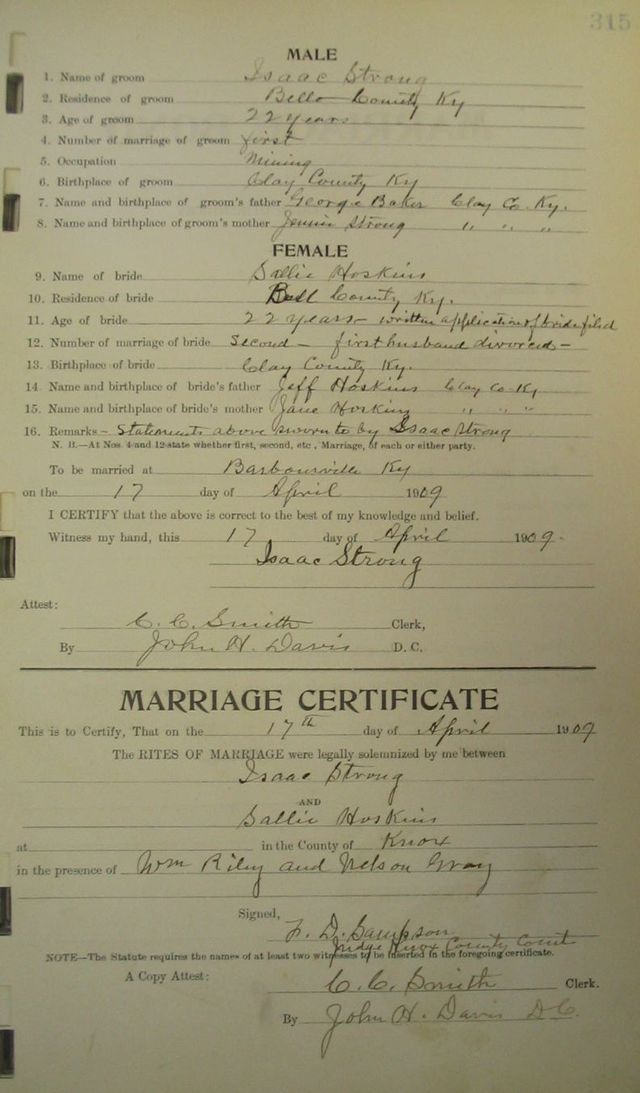 315
MALE
1. Name of groom Isaac Strong
2. Residence of groom Bell County Ky
3. Age of groom 22 years
4. Number of marriage of groom first
5. Occupation Mining
6. Birthplace of groom Clay County Ky
7. Name and birthplace of groom's father George Baker Clay Co. Ky.
8. Name and birthplace of groom's mother Jennie Strong " " "
FEMALE
9. Name of bride Sallie Hoskins
10. Residence of bride Bell County Ky.
11. Age of bride 22 years - written application of bride filed
12. Number of marriage of bride Second - first husband divorced -
13. Birthplace of bride Clay County Ky.
14 Name and birthplace of bride's father Jeff Hoskins Clay Co Ky
15. Name and birthplace of bride's mother Jane Hoskins " " "
16. Remarks - Statements above sworn to by Isaac Strong
N. B.—At Nos. 4 and 12 state whether first, second, etc., Marriage, of each or either party.
To be married at Barbourville Ky
on the 17 day of April 1909
I CERTIFY that the above is correct to the best of my knowledge and belief.
Witness my hand, this 17 day of April 1909.
Isaac Strong
Attest:
C. C. Smith Clerk,
By John H. Davis D. C.
MARRIAGE CERTIFICATE
This is to Certify, That on the 17th day of April 1909
The RITES OF MARRIAGE were legally solemnized by me between
Isaac Strong
AND
Sallie Hoskins
at in the County of Knox
in the presence of Wm Riley and Nelson Gray
Signed,
F. D. Sampson
Judge Knox County Court
NOTE—The Statute requires the names of at least two witnesses to be inserted in the foregoing certificate.
A Copy Attest:
C. C. Smith Clerk.
By John H. Davis D.C.